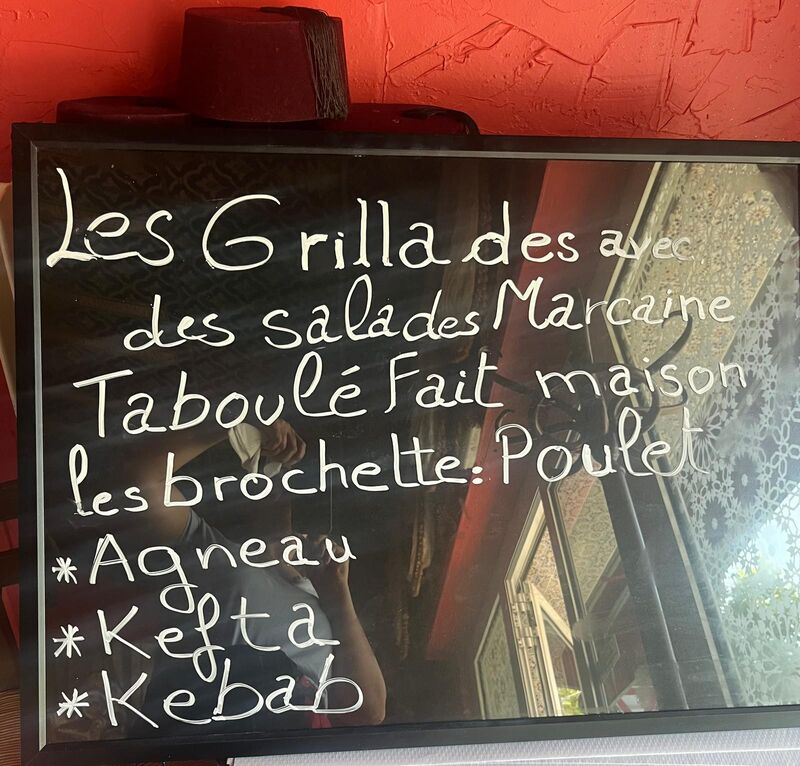 Les Grillades avec
des salades Marcaine
Taboulé Fait maison
les brochette: Poulet
* Agneau
* Kefta
* Kebab